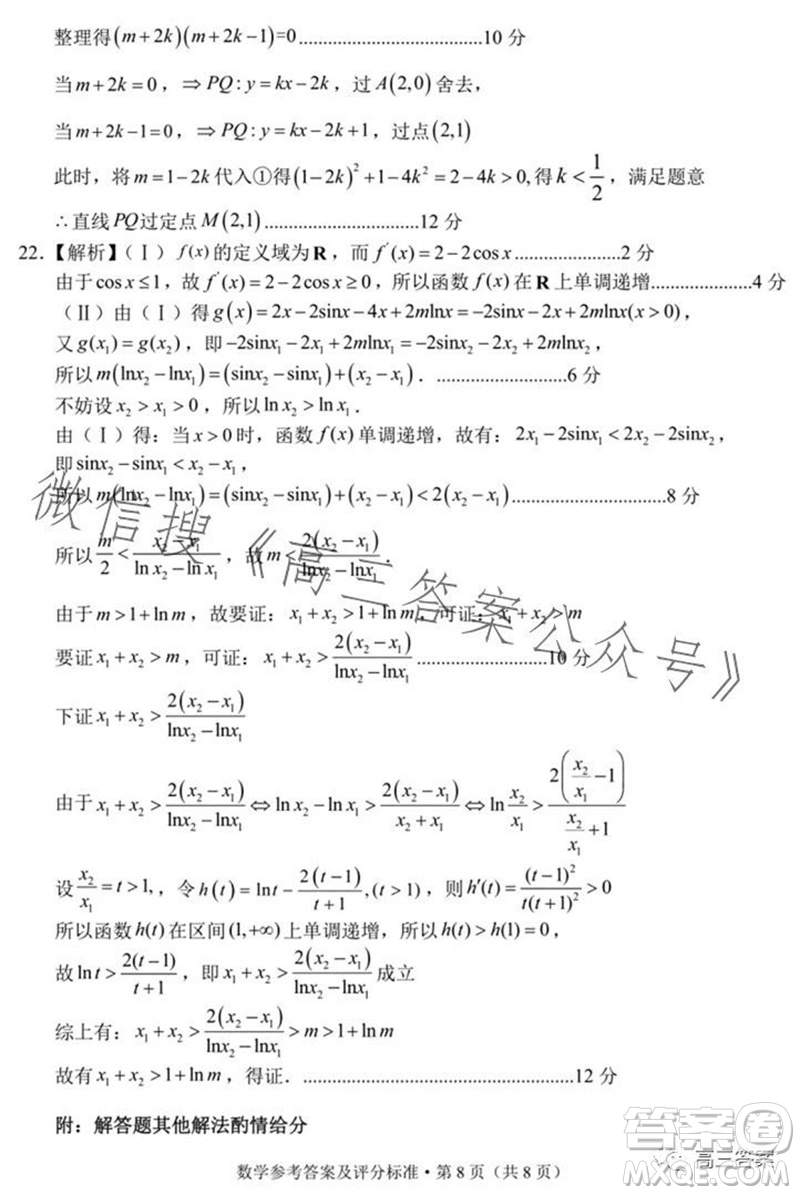 整理得(m+2k)(m+2k-1)=0..............................10 分
当m+2k=0，⇒PQ:y=kx-2k，过A(2,0)舍去，
当m+2k-1=0，⇒PQ:y=kx-2k+1，过点(2,1)
此时，将m=1-2k代入①得(1-2k)²+1-4k²=2-4k>0,得k<1/2，满足题意
∴直线PQ过定点M(2,1)..........................12 分
22.【解析】(Ⅰ) f(x)的定义域为R，而f′(x)=2-2cosx..................2 分
由于cosx≤1，故f′(x)=2-2cosx≥0，所以函数f(x)在R上单调递增.....................4 分
(Ⅱ)由(Ⅰ)得g(x)=2x-2sinx-4x+2mlnx=-2sinx-2x+2mlnx(x>0)，
又g(x₁)=g(x₂)，即-2sinx₁-2x₁+2mlnx₁=-2sinx₂-2x₂+2mlnx₂，
所以m(lnx₂-lnx₁)=(sinx₂-sinx₁)+(x₂-x₁)．......................6 分
不妨设x₂>x₁>0，所以lnx₂>lnx₁．
由(Ⅰ)得：当x>0时，函数f(x)单调递增，故有：2x₁-2sinx₁<2x₂-2sinx₂，
即sinx₂-sinx₁<x₂-x₁，
所以m(lnx₂-lnx₁)=(sinx₂-sinx₁)+(x₂-x₁)<2(x₂-x₁)..............................8 分
所以m/2<(x₂-x₁)/(lnx₂-lnx₁)，故m<2(x₂-x₁)/(lnx₂-lnx₁)．
由于m>1+lnm，故要证：x₁+x₂>1+lnm，可证：x₁+x₂>m
要证x₁+x₂>m，可证：x₁+x₂>2(x₂-x₁)/(lnx₂-lnx₁)..........................10 分
下证x₁+x₂>2(x₂-x₁)/(lnx₂-lnx₁)
由于x₁+x₂>2(x₂-x₁)/(lnx₂-lnx₁)⇔lnx₂-lnx₁>2(x₂-x₁)/(x₂+x₁)⇔ln(x₂/x₁)>2(x₂/x₁-1)/(x₂/x₁+1)
设x₂/x₁=t>1,，令h(t)=lnt-2(t-1)/(t+1),(t>1)，则h′(t)=(t-1)²/(t(t+1)²)>0
所以函数h(t)在区间(1,+∞)上单调递增，所以h(t)>h(1)=0，
故lnt>2(t-1)/(t+1)，即x₁+x₂>2(x₂-x₁)/(lnx₂-lnx₁)成立
综上有：x₁+x₂>2(x₂-x₁)/(lnx₂-lnx₁)>m>1+lnm
故有x₁+x₂>1+lnm，得证．....................................................12 分
附：解答题其他解法酌情给分
数学参考答案及评分标准·第8页（共8页）
微信搜《高三答案公众号》
高三答案
答案圈
MXQE.COM